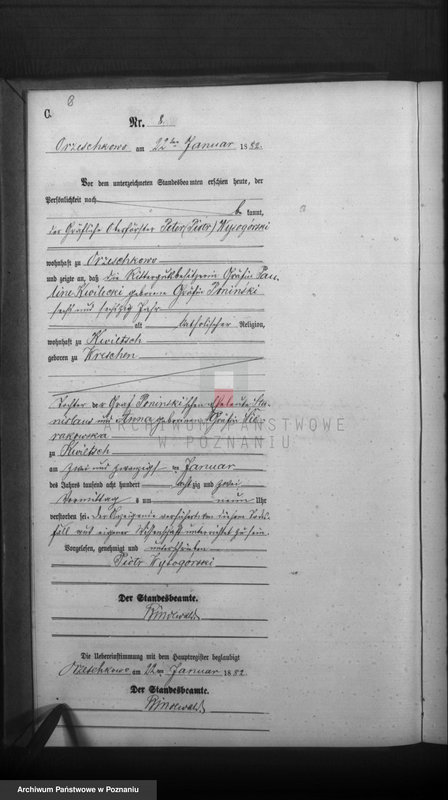 8
C.
Nr. 8
Orzeschkowo am 22ten Januar 1882.
Vor dem unterzeichneten Standesbeamten erschien heute, der
Persönlichkeit nach
be kannt,
der Gräfliche Oberförster Peter (Piotr) Wysogórski
wohnhaft zu Orzeschkowo
und zeigte an, daß die Rittergutsbesitzerin Gräfin Pau-
line Kwilecki geborene Gräfin Poninski
sechs und sechszig Jahr
alt katholischer Religion,
wohnhaft zu Kwiltsch
geboren zu Wreschen
Tochter der Graf Poninski'schen Eheleute Sta-
nislaus und Anna geborenen Gräfin Sie-
rakowska
zu Kwiltsch
am zwei und zwanzigsten Januar
des Jahres tausend acht hundert achtzig und zwei
Vormittag s um neun Uhr
verstorben sei. Der Anzeigende versicherte von diesem Todes-
fall aus eigener Wissenschaft unterrichtet zu sein.
Vorgelesen, genehmigt und unterschrieben
Piotr Wysogórski
Der Standesbeamte.
Die Uebereinstimmung mit dem Hauptregister beglaubigt
Orzeschkowo am 22ten Januar 1882.
Der Standesbeamte.
ARCHIWUM PAŃSTWOWE
W POZNANIU
Archiwum Państwowe w Poznaniu